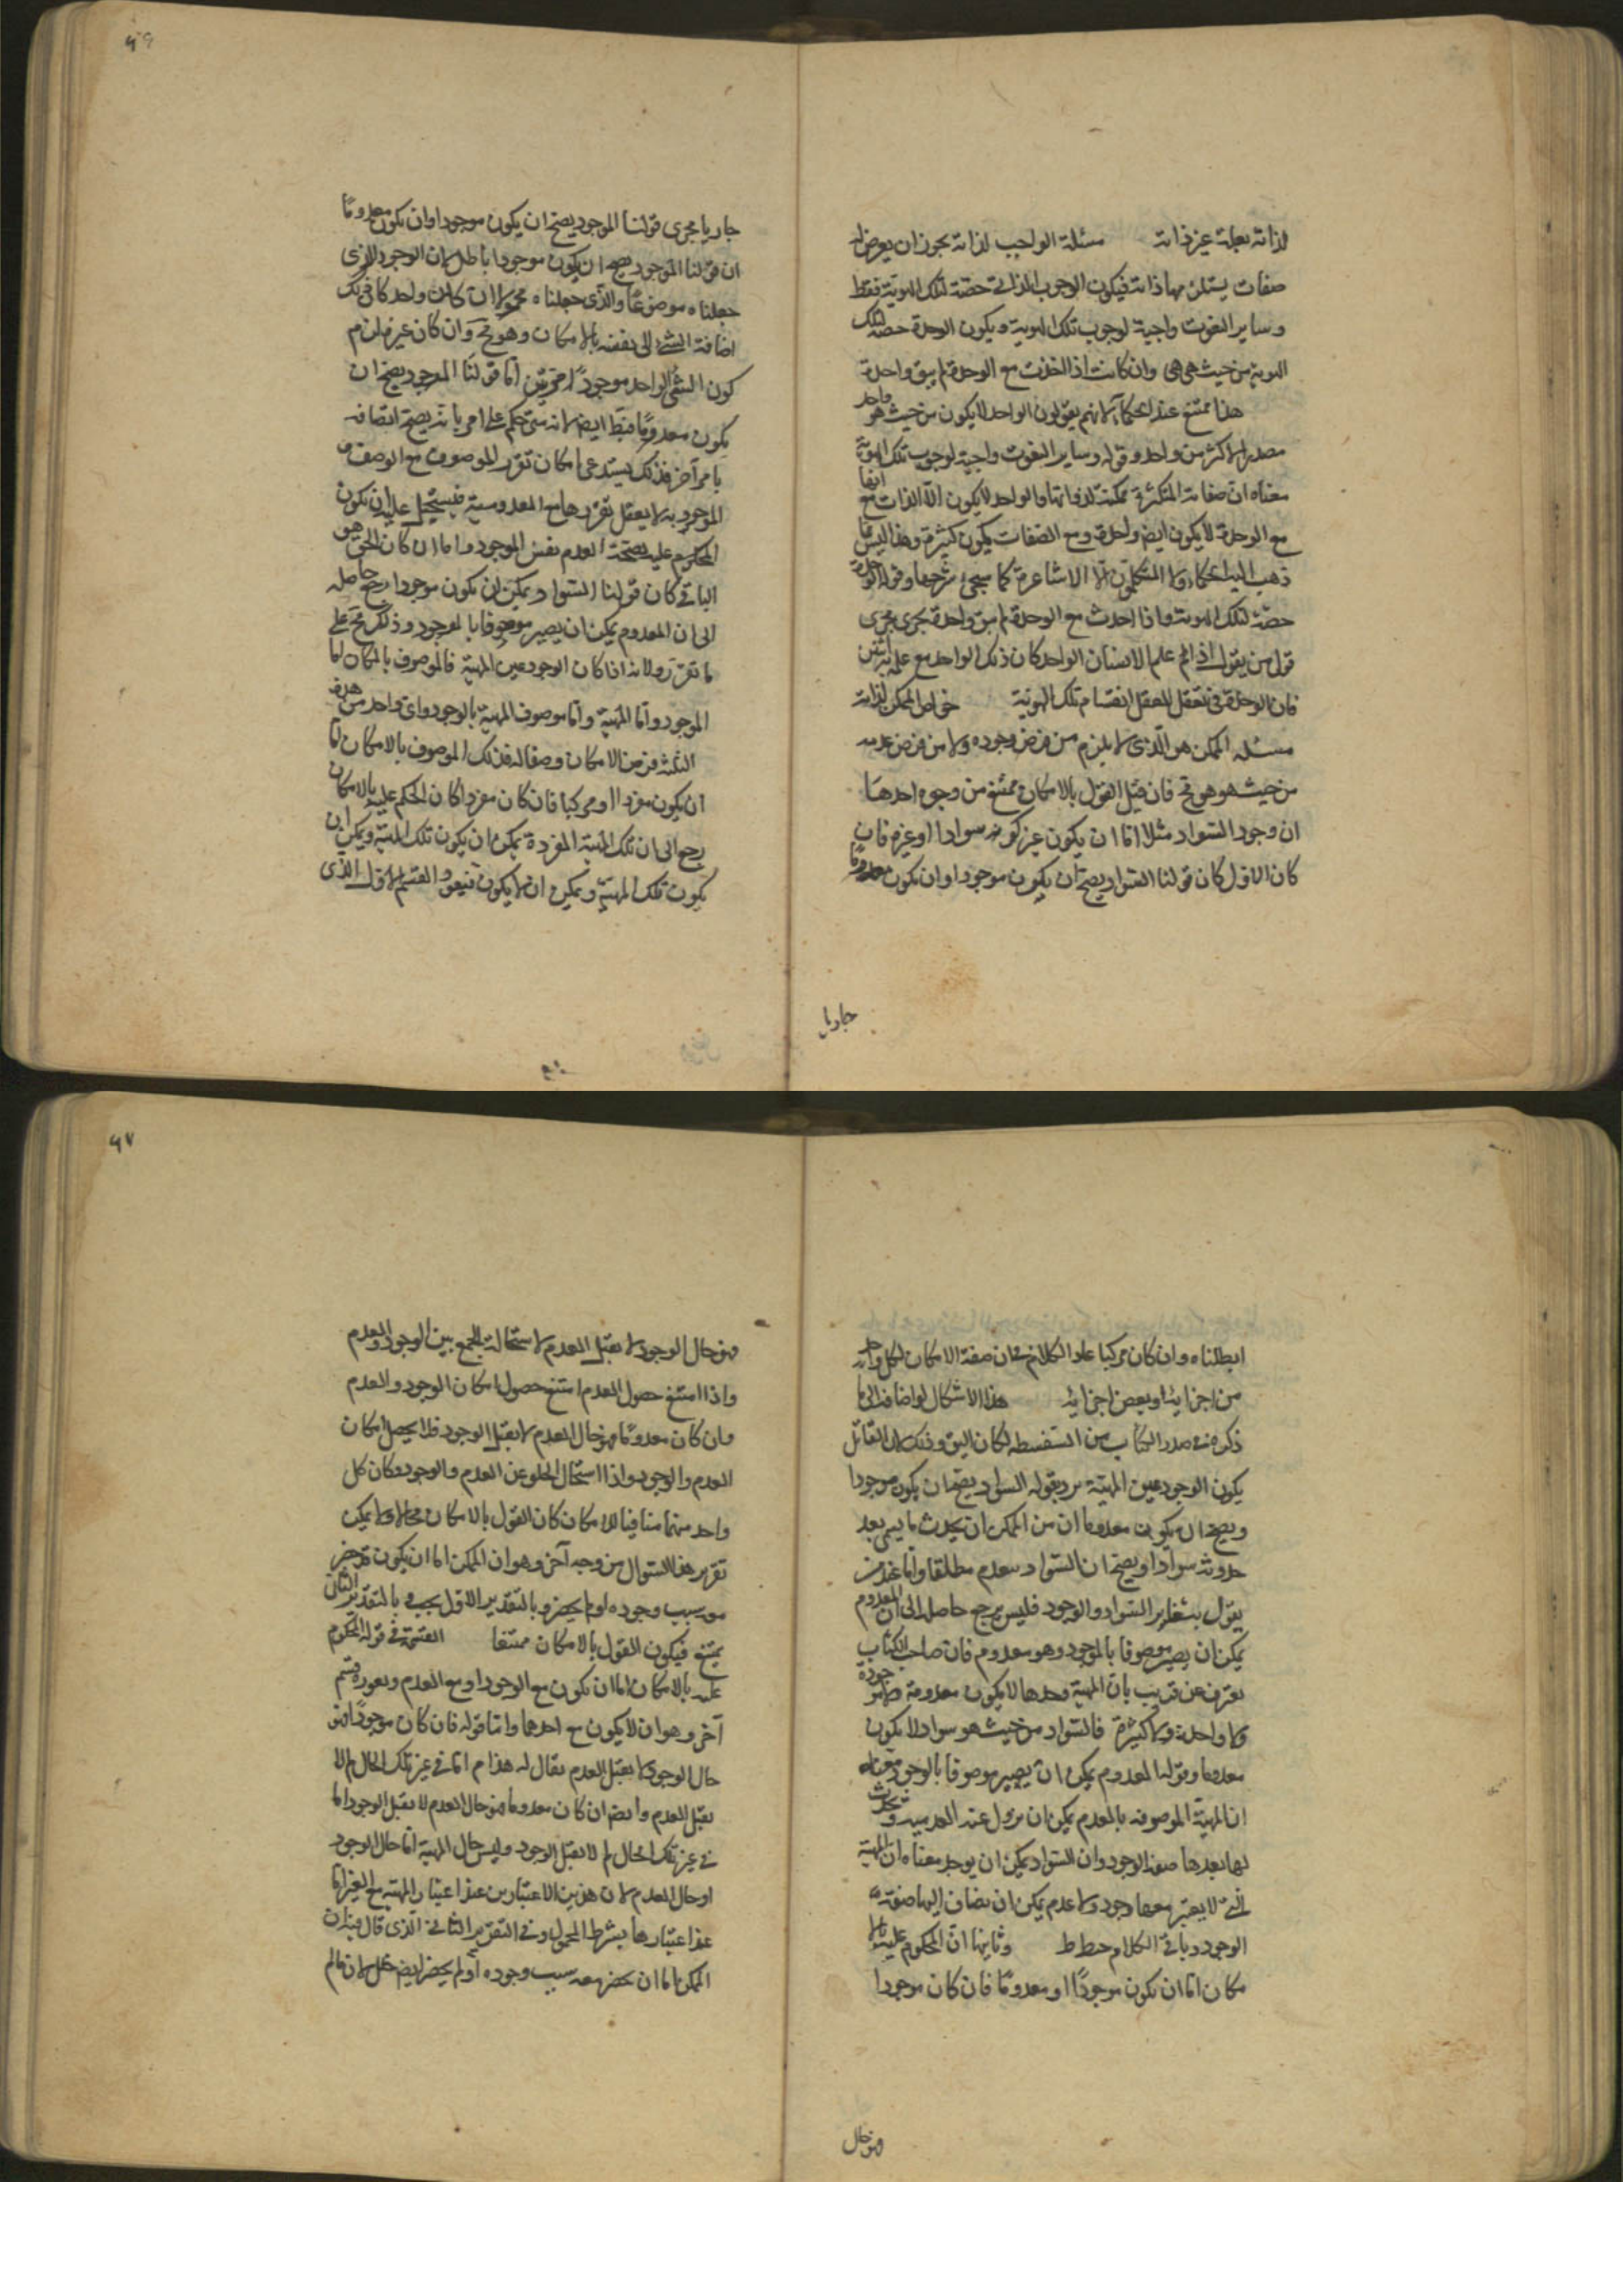 لذاته بعلة غير ذاته مسئلة الواجب لذاته يجوز ان يعرض له
صفات يستلزمها ذاته فيكون الوجوب الذاتى حصة لتلك الهوية فقط
و ساير النعوت واجبة لوجوب تلك الهوية ويكون الوحدة حصة لتلك
الهوية من حيث هى هى وان كانت اذا اخذت مع الوحدة لم يبق واحدة
هذا ممتنع عند الحكماء لانهم يقولون الواحد لا يكون من حيث هو واحد
مصدر الاكثر من واحد وقوله وساير النعوت واجبة لوجوب تلك الهوية
معناه ان صفاته المتكثرة ممكنة لذواتها والواحد لا يكون الا الذات مع
مع الوحدة لا يكون ايض واحدة ومع الصفات يكون كثيرة وهذا ليس مما
ذهب اليه الحكماء ولا المتكلمون الا الاشاعرة كما سيجئ شرحها وقوله الوحدة
حصة لتلك الهوية واذا اخذت مع الوحدة لم يبق واحدة يجرى مجرى
قول من يقول اذا لم علم الانسان الواحد كان ذلك الواحد مع علمه اثنين
فان الوحدة هى تعقل العقل انقسام تلك الهوية خواص الممكن لذاته
مسئله الممكن هو الذى لا يلزم من فرض وجوده ولا من فرض عدمه
من حيث هو هو مح فان قيل القول بالامكان ممتنع من وجوه احدها
ان وجود السواد مثلا اما ان يكون عين كونه سوادا او غيره فان
كان الاول كان قولنا السواد يصح ان يكون موجودا وان يكون معدوما
جاريا
جاريا مجرى قولنا الموجود يصح ان يكون موجودا وان يكون معدوما
ان قولنا الموجود يصح ان يكون موجودا باطل لان الوجود الذى
جعلناه موضوعا والذى جعلناه محمولا ان كان واحد كان ذلك
اضافة الشئ الى نفسه بالامكان وهو مح وان كان غيره لزم
كون الشئ الواحد موجودا مرتين اما قولنا الموجود يصح ان
يكون معدوما فبط ايض لانه متى حكم على امر بانه يصح اتصافه
بامر آخر فذلك يستدعى امكان تقرر الموصوف مع الوصف و
الموجودية لا يعقل تقررها مع المعدومية فيستحيل عليه ان يكون
المحكوم عليه بصحة العدم نفس الموجود واما ان كان الحق هو
الباقى كان قولنا السواد يمكن ان يكون موجودا يرجع حاصله
الى ان المعدوم يمكن ان يصير موصوفا بالوجود وذلك مح على
ما تقرر ولانه اذا كان الوجود عين المهية فالموصوف بالامكان اما
الموجود واما المهية واما موصوف المهية بالوجود واى واحد من هذه
الثلثة فرض الامكان وصفا له فذلك الموصوف بالامكان اما
ان يكون مفردا او مركبا فان كان مفردا كان الحكم عليه بالامكان
يرجع الى ان تلك المهية المفردة يمكن ان يكون تلك المهية ويمكن ان
يكون تلك المهية ويمكن ان لا يكون فيعود القسم الاول الذى
ابطلناه وان كان مركبا عاد الكلام فى ان صفة الامكان لكل واحد
من اجزايه او بعض اجزايه هذا الاشكال لو اضافه الى ما
ذكره فى صدر الكتاب من السفسطه لكان اليق وذلك ان القائل
بكون الوجود عين المهية يريد بقوله السواد يصح ان يكون موجودا
ويصح ان يكون معدوما ان من الممكن ان يحدث ما يسمى بعد
حدوثه سوادا ويصح ان السواد سعدم مطلقا واما عند من
يقول بتغاير السواد والوجود فليس يرجع حاصله الى ان المعدوم
يمكن ان يصير موصوفا بالوجود وهو معدوم فان صاحب الكتاب
يعترف عن قريب بان المهية وحدها لا يكون معدومة ولا موجودة
ولا واحدة ولا كثيرة فالسواد من حيث هو سواد لا يكون
معدوما وقولنا المعدوم يمكن ان يصير موصوفا بالوجود معناه
ان المهية الموصوفه بالعدم يمكن ان يزول عنه العدميه ويحدث
لها بعدها صفة الوجود وان السواد يمكن ان يوجد معناه ان المهية
التى لا يعتبر معها وجود ولا عدم يمكن ان يضاف اليها صفة
الوجود وباقى الكلام خبط ط وثانيها ان المحكوم عليه بالا
مكان اما ان يكون موجودا او معدوما فان كان موجودا
فهو حال
فهو حال الوجود لا يقبل العدم لاستحالة الجمع بين الوجود والعدم
واذا امتنع حصول العدم امتنع حصول امكان الوجود والعدم
وان كان معدوما فهو حال العدم لا يقبل الوجود فلا يحصل امكان
العدم والوجود واذا استحال الخلو عن العدم والوجود وكان كل
واحد منهما منافيا للامكان كان القول بالامكان محالا ولا يمكن
تقرير هذا السؤال من وجه آخر وهو ان الممكن اما ان يكون قد حضر
معه سبب وجوده او لم يحضر وبالتقدير الاول يجب وبالتقدير الثانى
يمتنع فيكون القول بالامكان ممتنعا القسمة فى قوله المحكوم
عليه بالامكان اما ان يكون مع الوجود او مع العدم ويعوزه قسم
آخر وهو ان لا يكون مع احدهما واما قوله فان كان موجودا فهو
حال الوجود لا يقبل العدم يقال له هذا م اما فى غير تلك الحال لم لا
يقبل العدم وايض ان كان معدوما فهو حال العدم لا يقبل الوجود اما
فى غير تلك الحال لم لا يقبل الوجود وليس حال المهية اما حال الوجود
او حال العدم لان هذين الاعتبارين عند اعتبار المهية مع الغير اما
عند اعتبارها بشرط المحمول وفى التقرير الثانى الذى قال فيه ان
الممكن اما ان يحضر معه سبب وجوده او لم يحضر ايض خلل لان عالم